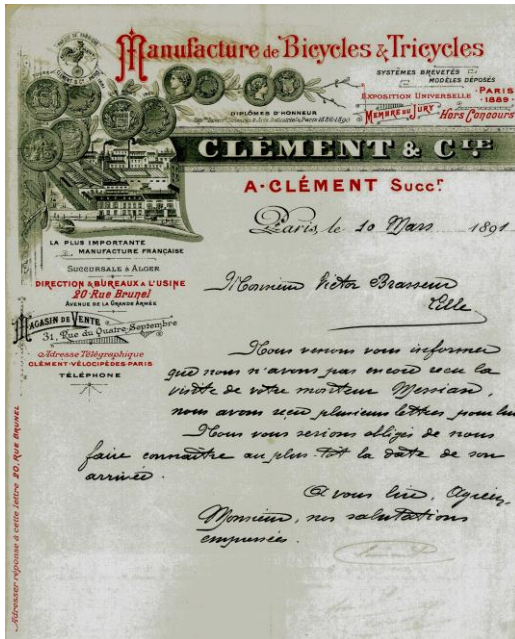 Manufacture de Bicycles & Tricycles
SYSTÈMES BREVETÉS
MODÈLES DÉPOSÉS
EXPOSITION UNIVERSELLE · PARIS · 1889 ·
MEMBRE DU JURY
Hors Concours
DIPLÔMES D'HONNEUR
CLÉMENT & CIE
A·CLÉMENT Succr
Paris, le 10 Mars 1891
LA PLUS IMPORTANTE
MANUFACTURE FRANÇAISE
SUCCURSALE À ALGER
DIRECTION & BUREAUX A L'USINE
20 Rue Brunel
AVENUE DE LA GRANDE ARMÉE
MAGASIN DE VENTE
31, Rue du Quatre-Septembre
Adresse Télégraphique
CLÉMENT-VÉLOCIPÈDES-PARIS
TÉLÉPHONE
Adresser réponse à cette lettre 20, RUE BRUNEL
Monsieur Victor Brasseur
Lille
Nous venons vous informer
que nous n'avons pas encore reçu la
visite de votre moniteur Messian,
nous avons reçu plusieurs lettres pour lui
Nous vous serions obligés de nous
faire connaître au plus tôt la date de son
arrivée.
A vous lire, Agréez,
Monsieur, nos salutations
empressées.